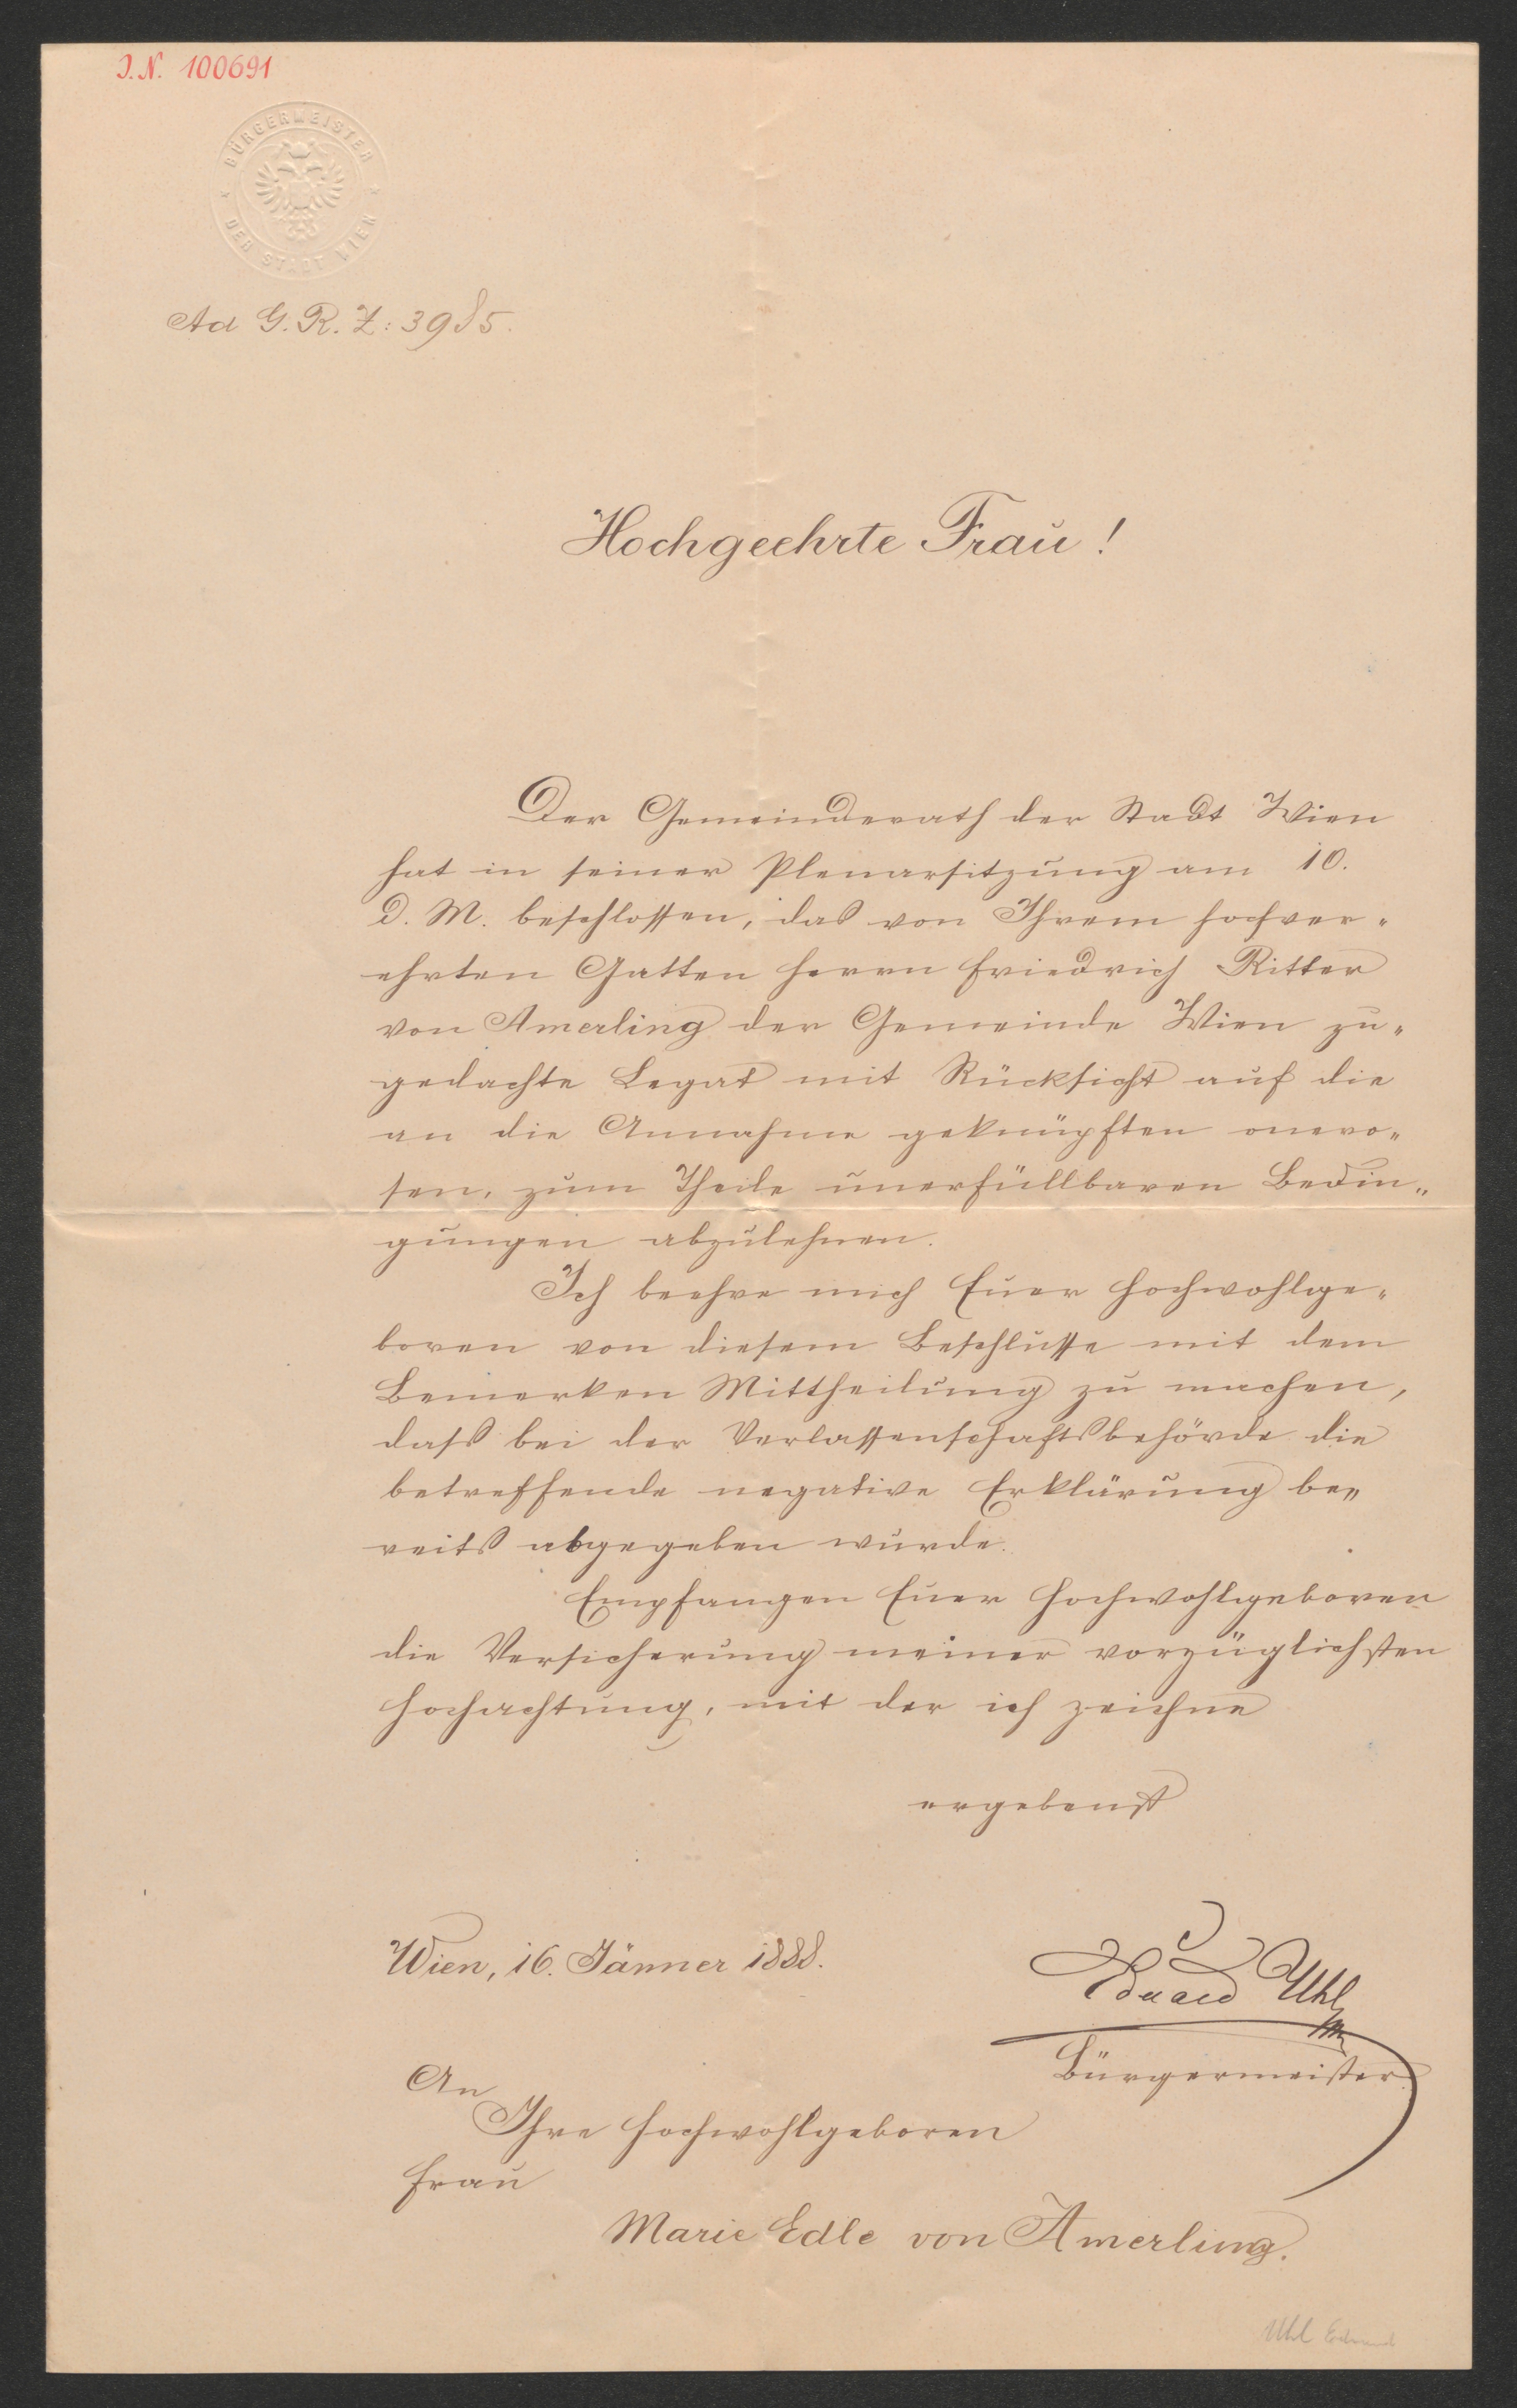 J.N. 100691
BÜRGERMEISTER
DER STADT WIEN
Ad G. R. Z: 3985.
Hochgeehrte Frau!
Der Gemeinderath der Stadt Wien
hat in seiner Plenarsitzung am 10.
d. M. beschlossen, das von Ihrem hochver„
ehrten Gatten Herrn Friedrich Ritter
von Amerling der Gemeinde Wien zu„
gedachte Legat mit Rücksicht auf die
an die Annahme geknüpften onero„
sen, zum Theile unerfüllbaren Bedin„
gungen abzulehnen.
Ich beehre mich Euer Hochwohlge„
boren von diesem Beschlusse mit dem
Bemerken Mittheilung zu machen,
dass bei der Verlassenschaftsbehörde die
betreffende negative Erklärung be„
reits abgegeben wurde.
Empfangen Euer Hochwohlgeboren
die Versicherung meiner vorzüglichsten
Hochachtung, mit der ich zeichne
ergebenst
Wien, 16. Jänner 1888.
Eduard Uhl
Bürgermeister
An
Ihre Hochwohlgeboren
Frau
Marie Edle von Amerling.
Uhl Eduard